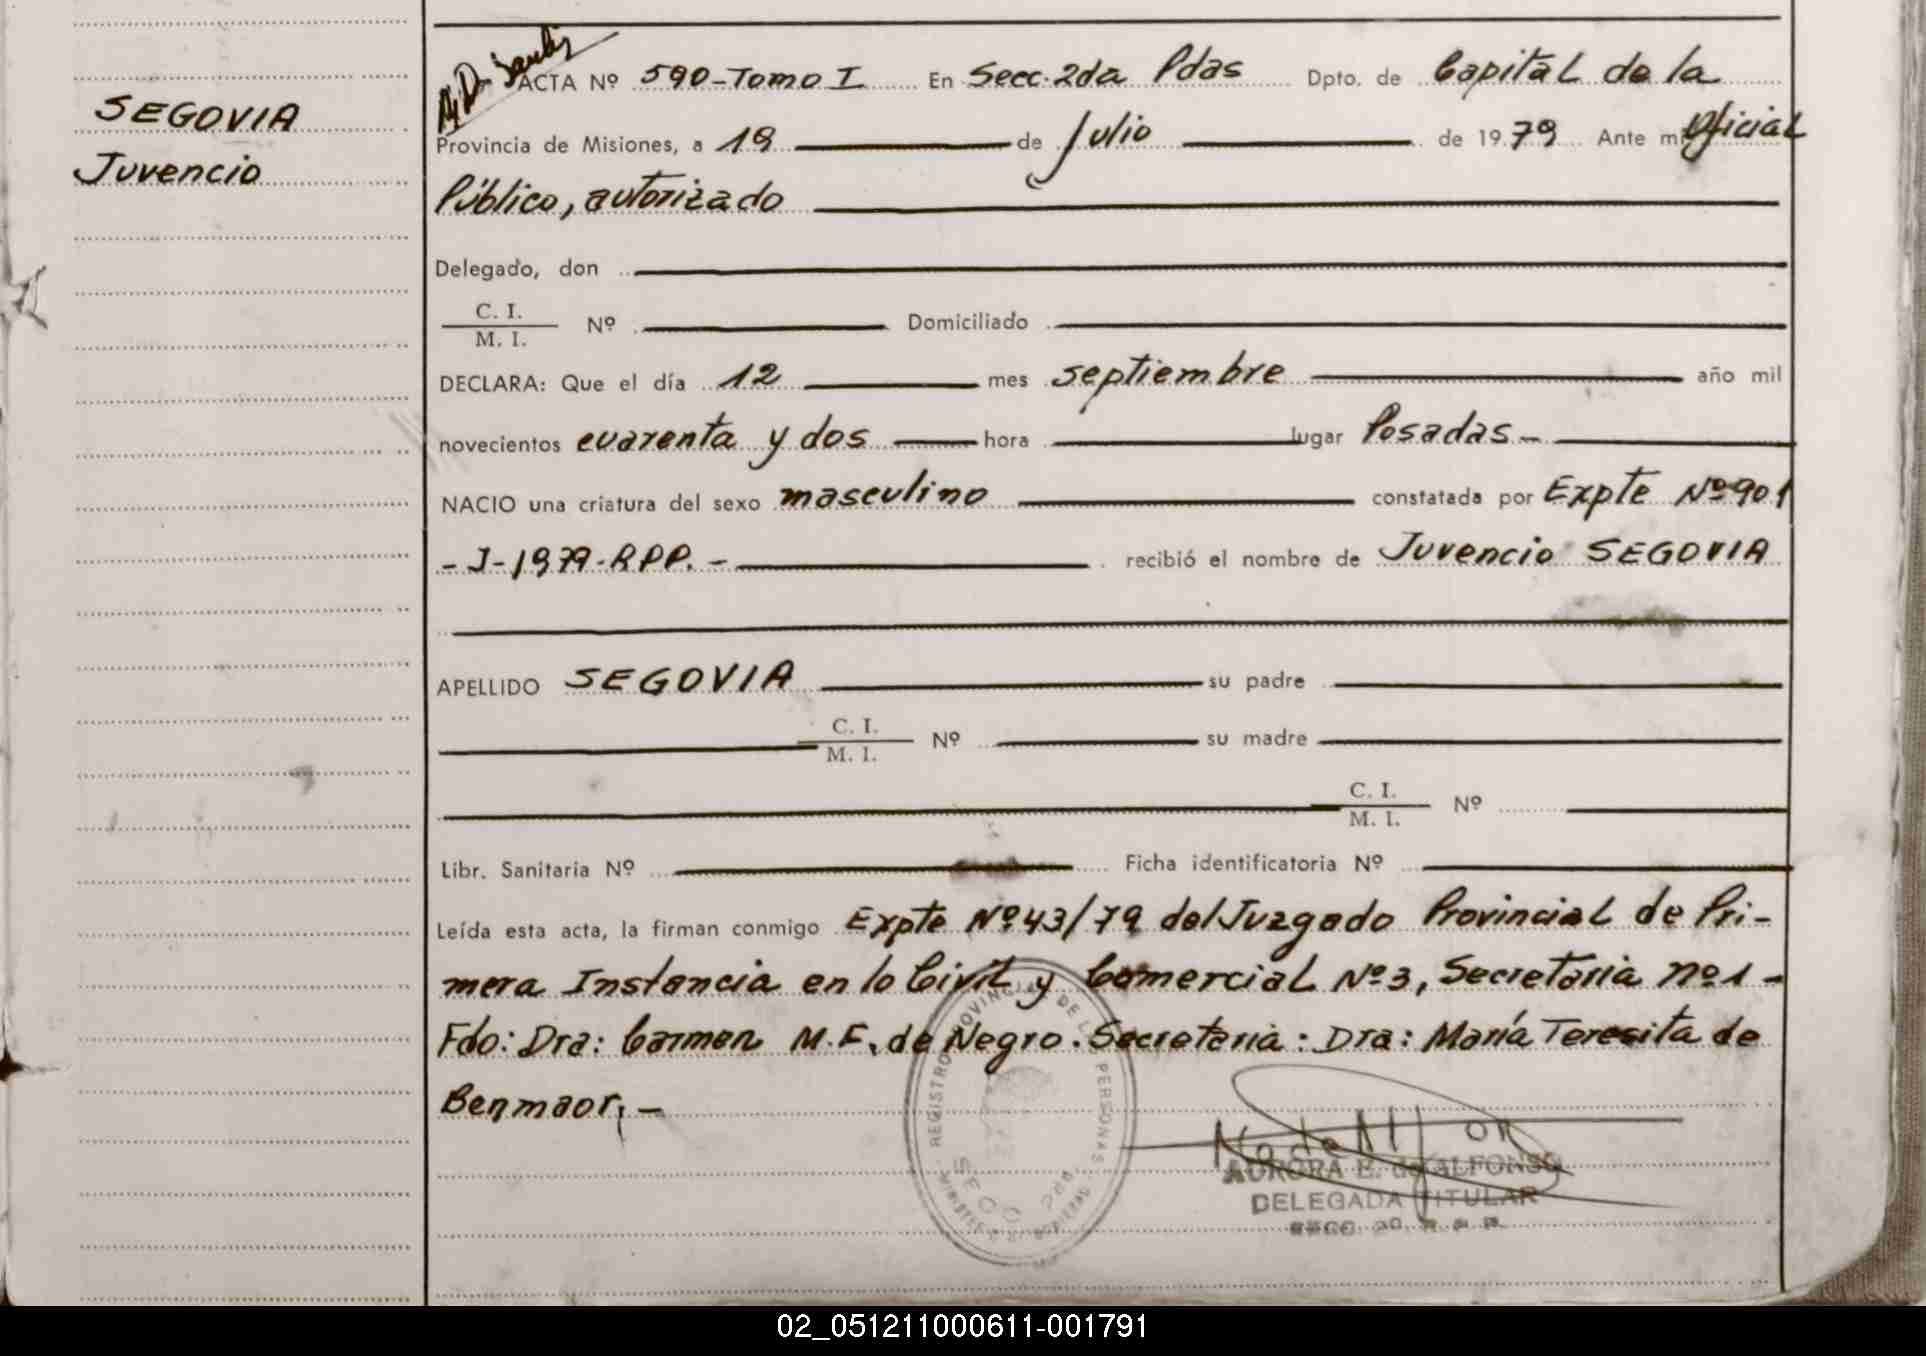 SEGOVIA
Juvencio
ACTA Nº 590-Tomo I En Secc. 2da Pdas Dpto. de Capital de la
Provincia de Misiones, a 19 de Julio de 1979 Ante mí Oficial
Público, autorizado
Delegado, don
C. I.
M. I. Nº Domiciliado
DECLARA: Que el día 12 mes septiembre año mil
novecientos cuarenta y dos hora lugar Posadas-
NACIO una criatura del sexo masculino constatada por Expte Nº 901
-J-1979-RPP.- recibió el nombre de Juvencio SEGOVIA
APELLIDO SEGOVIA su padre
C. I.
M. I. Nº su madre
C. I.
M. I. Nº
Libr. Sanitaria Nº Ficha identificatoria Nº
Leída esta acta, la firman conmigo Expte Nº 43/79 del Juzgado Provincial de Pri-
mera Instancia en lo Civil y Comercial Nº 3, Secretaria nº 1-
Fdo: Dra: Carmen M.F. de Negro. Secretaria: Dra: María Teresita de
Benmaor.-
REGISTRO PROVINCIAL DE LAS PERSONAS
AURORA E. de ALFONSO
DELEGADA TITULAR
02_051211000611-001791